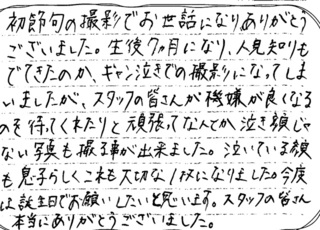 初節句の撮影でお世話になりありがとう
ございました。生後7ヶ月になり、人見知りも
でてきたのか、ギャン泣きでの撮影になってしま
いましたが、スタッフの皆さんが機嫌が良くなる
のを待ってくれたりと頑張ってなんとか、泣き顔じゃ
ない写真も撮る事が出来ました。泣いている顔
も息子らしくこれも大切な1枚になりました。今度
は誕生日でお願いしたいと思います。スタッフの皆さん
本当にありがとうございました。